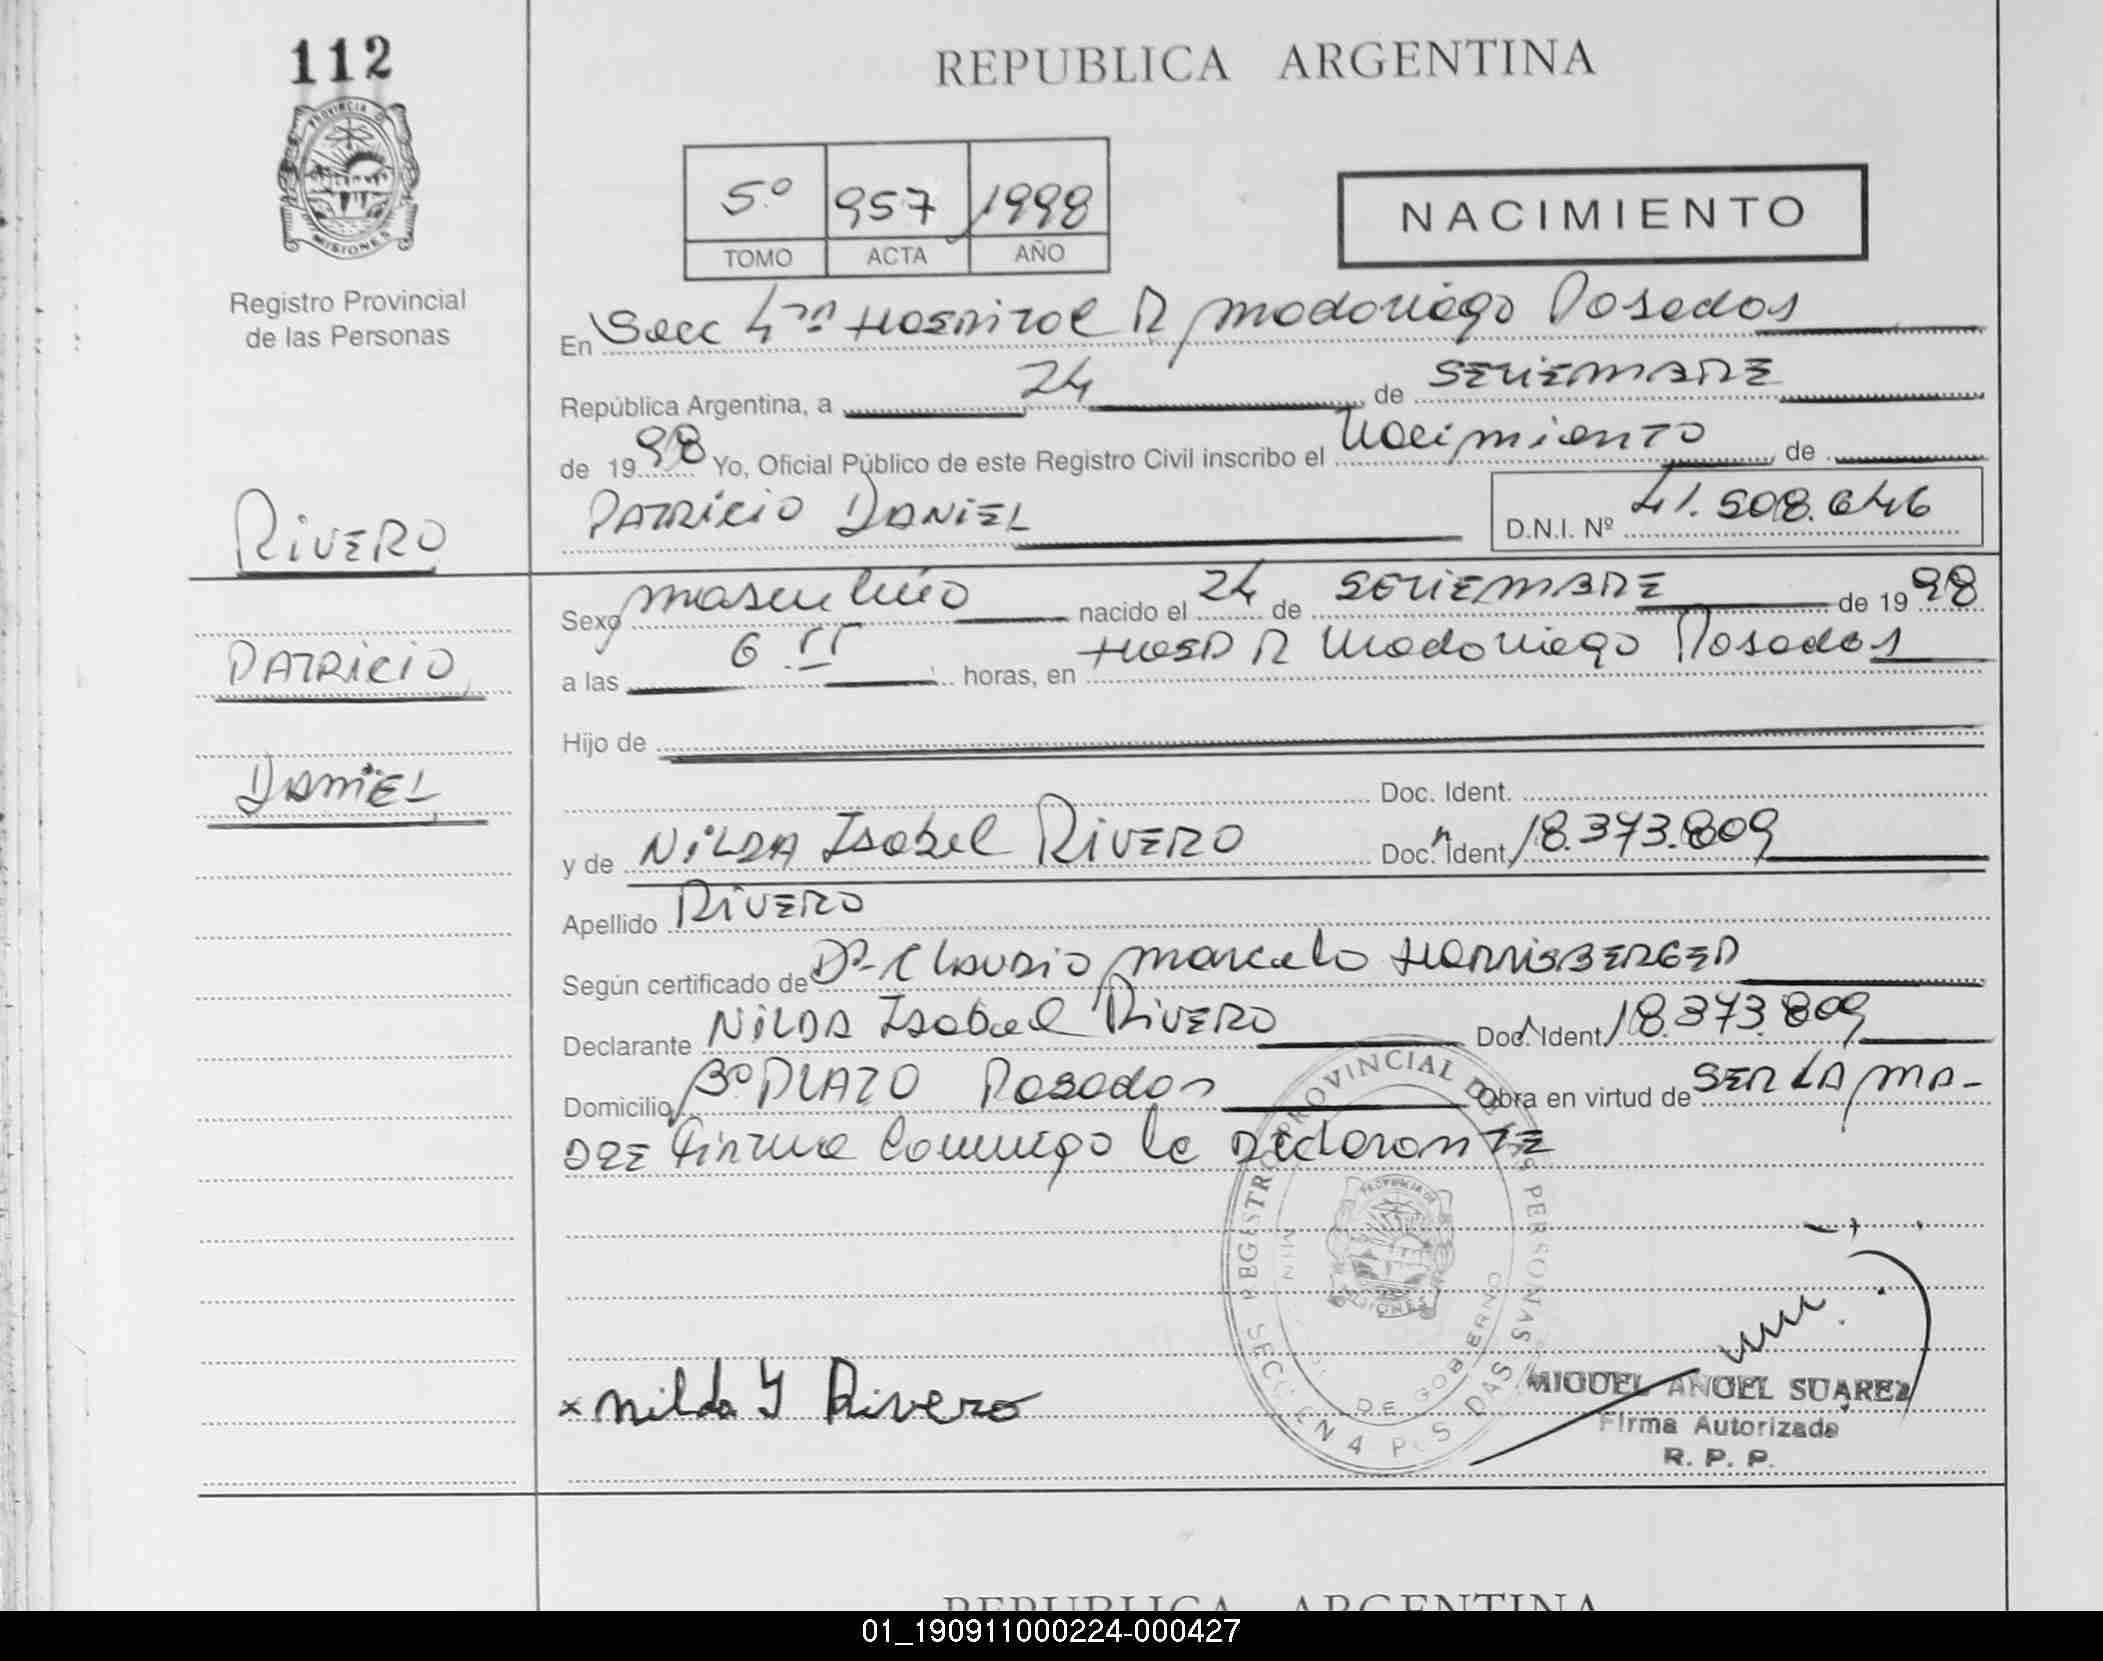 112
REPUBLICA ARGENTINA
PROVINCIA DE
MISIONES
Registro Provincial
de las Personas
5º 957 1998
TOMO ACTA AÑO
NACIMIENTO
En Secc 4ta Hospital R Madariaga Posadas
República Argentina, a 24 de SETIEMBRE
de 1998 Yo, Oficial Público de este Registro Civil inscribo el Nacimiento, de
PATRICIO DANIEL
D.N.I. Nº 41.508.646
RIVERO
PATRICIO
DANIEL
Sexo masculino nacido el 24 de SETIEMBRE de 1998
a las 6 horas, en HOSP R Madariaga Posadas
Hijo de
Doc. Ident.
y de NILDA Isabel RIVERO Doc. Ident. 18.373.809
Apellido RIVERO
Según certificado de Dr. Claudio Marcelo
Declarante NILDA Isabel RIVERO Doc. Ident. 18.373.809
Domicilio Bº Posadas Obra en virtud de SER LA MA-
DRE Firma Conmigo la DEClARANTE
REGISTRO PROVINCIAL DE LAS PERSONAS
PROVINCIA DE
MISIONES
DE GOBIERNO
x Nilda Y Rivero
MIGUEL ANGEL SUAREZ
Firma Autorizada
R. P. P.
REPUBLICA ARGENTINA
01_190911000224-000427